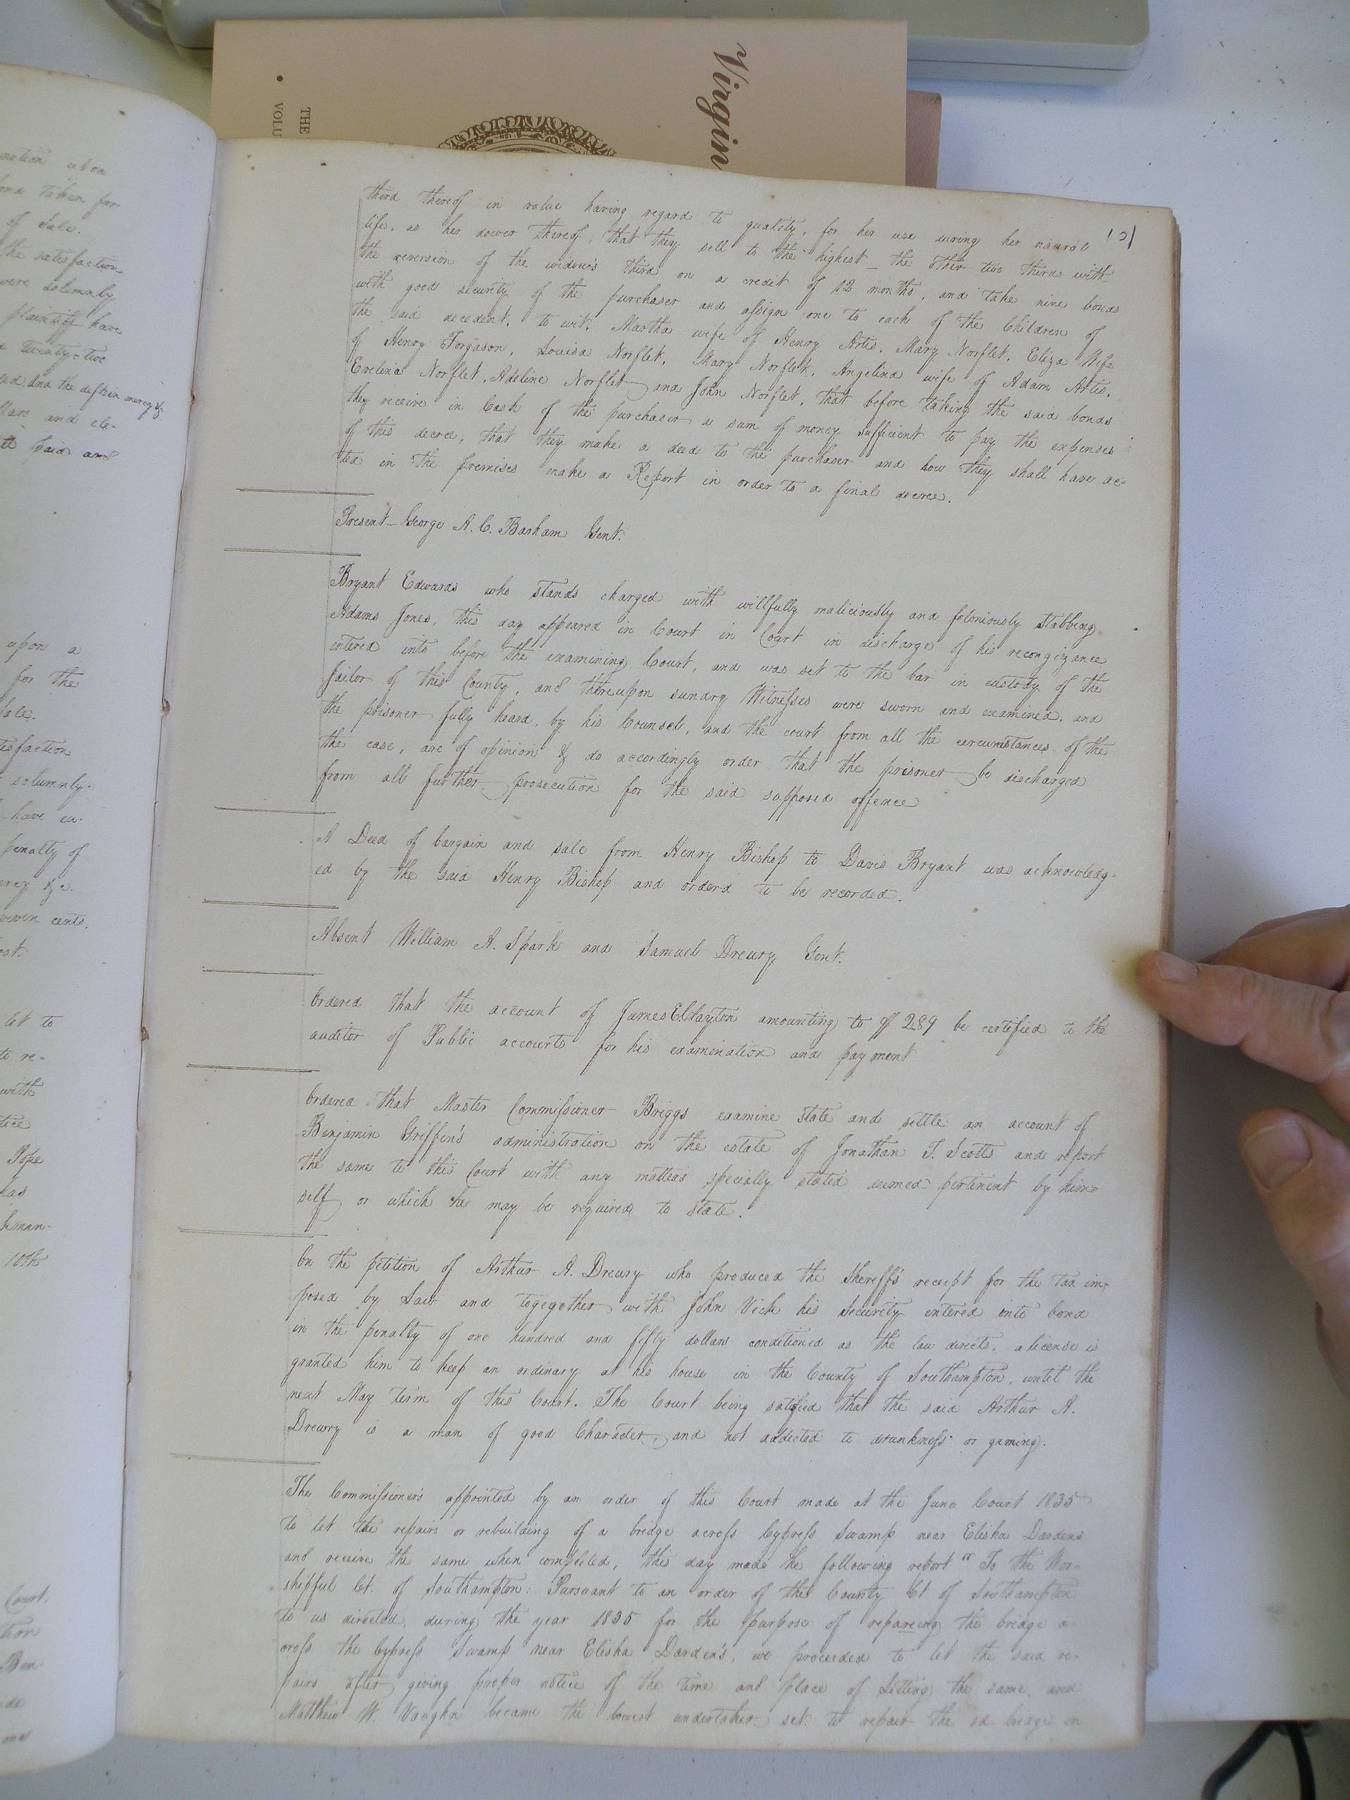 Virgin
THE
VOLU
101
third thereof in value having regard to quality, for her use during her natural
life, as her dower thereof, that they sell to the highest the other two thirds with
the reversion of the widow's third on a credit of 12 months, and take nine bonds
with good security of the purchaser and assign one to each of the Children of
the said decedent, to wit, Martha wife of Henry Artis, Mary Norflet, Eliza Wife
of Henry Forgason, Louisa Norflet, Mary Norflet, Angelina wife of Adam Artis,
Evelina Norflet, Adeline Norflet and John Norflet, that before taking the said bonds
they receive in Cash of the purchaser a sum of money sufficient to pay the expenses
of this decree, that they make a deed to the purchaser and how they shall have ac-
ted in the premises make a Report in order to a final decree.
Present George A. C. Barham Gent.
Bryant Edwards who stands charged with willfully maliciously and feloniously stabbing
Adams Jones, this day appeared in Court in Court in discharge of his recongizance
entered into before the examining Court, and was set to the bar in custody of the
Jailor of this County, and thereupon sundry Witnesses were sworn and examined, and
the prisoner fully heard, by his Counsel, and the court from all the circumstances of the
the case, are of opinion & do accordingly order that the prisoner be discharged
from all further prosecution for the said supposed offence
A Deed of bargain and sale from Henry Bishop to Davis Bryant was acknowledg-
ed by the said Henry Bishop and orderd to be recorded.
Absent William A. Spark and Samuel Drewry Gent.
Ordered that the account of James E. Clayton amounting to $ 289 be certified to the
auditor of Public accounts for his examination and payment
Ordered that Master Commissioner Briggs examine state and settle an account of
Benjamin Griffin's administration on the estate of Jonathan T. Scotts and report
the same to this Court with any matters specially stated deemed pertinent by him-
self or which he may be required to state.
On the petition of Arthur A. Drewry who produced the Sheriff's receipt for the tax im-
posed by Law and togegether with John Vick his Security entered into bond
in the penalty of one hundred and fifty dollars conditioned as the law directs, a license is
granted him to keep an ordinary at his house in the County of Southampton, until the
next May term of this Court. The Court being satisfied that the said Arthur A.
Drewry is a man of good Character, and not addicted to drunkness or gaming.
The Commissioners appointed by an order of this Court made at the June Court 1835
to let the repairs or rebuilding of a bridge across Cypress Swamp near Elisha Dardens
and receive the same when completed, this day made the following report " To the Wor-
shipful Ct. of Southampton: Pursuant to an order of the County Ct of Southampton
to us directed, during the year 1835 for the purpose of repareing the bridge a-
cross the Cypress Swamp near Elisha Darden's, we proceeded to let the said re-
pairs after giving proper notice of the time and place of Letting the same, and
Matthew W. Vaughn became the lowest undertaker set to repair the sd bridge in